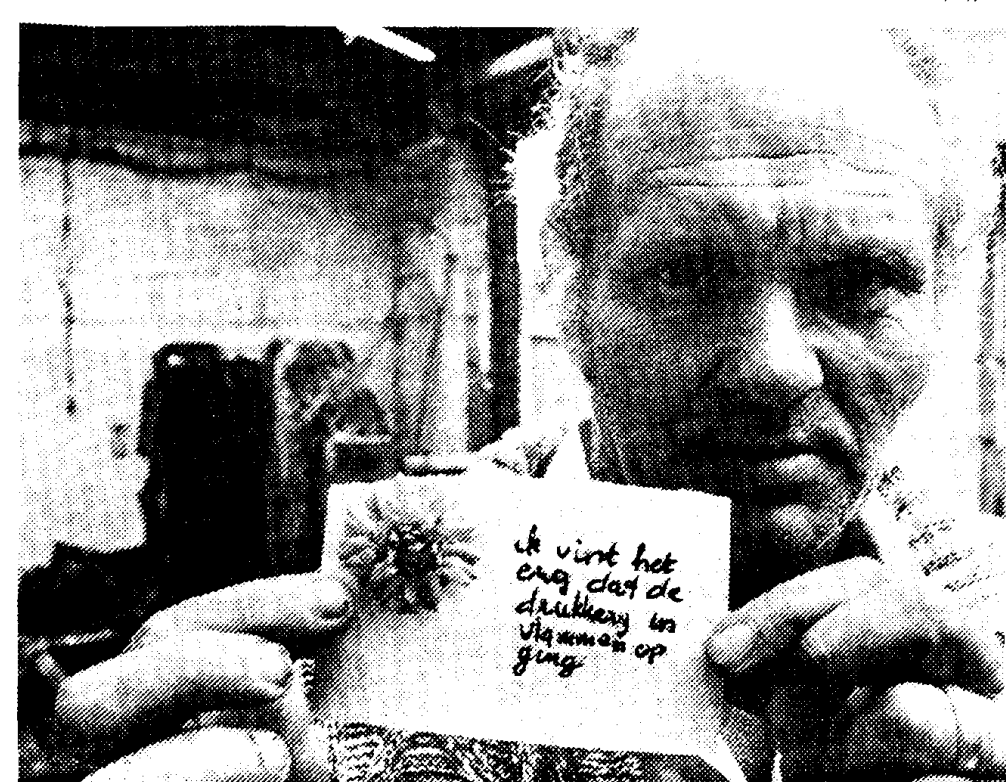 ik vint het
erg dat de
drukkery in
vlammen op
ging